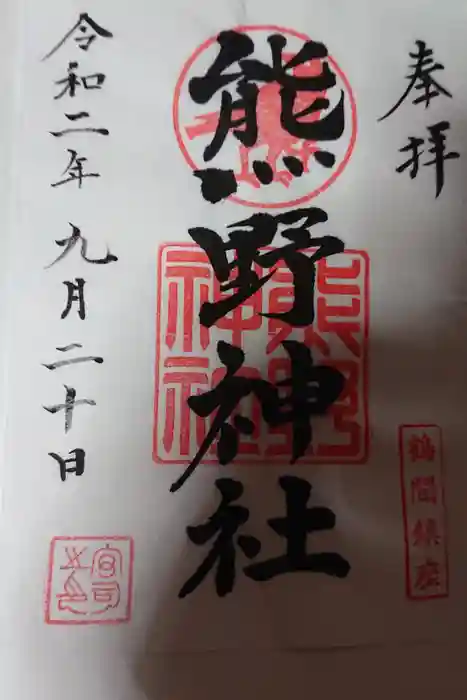 奉拝
熊野神社
熊野
神社
鶴間鎮座
令和二年 九月二十日
宮司
之印